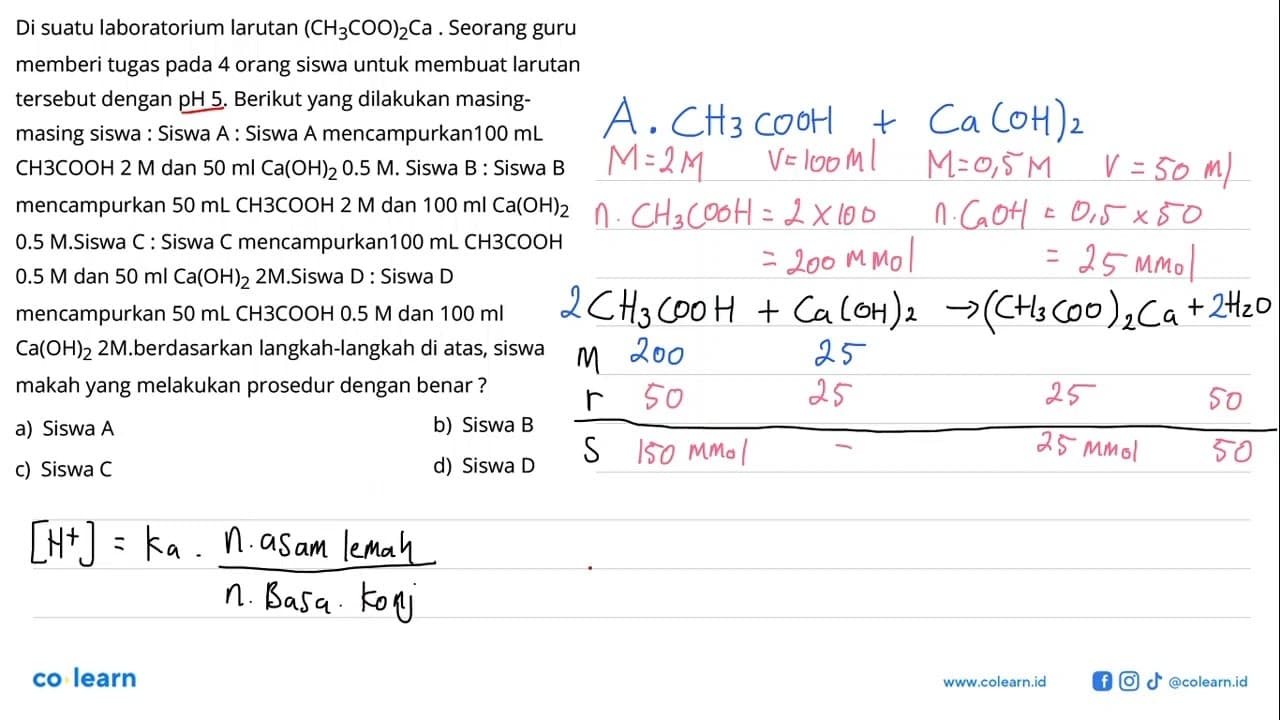 Di suatu laboratorium larutan (CH₃COO)₂Ca . Seorang guru
memberi tugas pada 4 orang siswa untuk membuat larutan
tersebut dengan pH 5. Berikut yang dilakukan masing-
masing siswa : Siswa A : Siswa A mencampurkan100 mL
CH3COOH 2 M dan 50 ml Ca(OH)₂ 0.5 M. Siswa B : Siswa B
mencampurkan 50 mL CH3COOH 2 M dan 100 ml Ca(OH)₂
0.5 M.Siswa C : Siswa C mencampurkan100 mL CH3COOH
0.5 M dan 50 ml Ca(OH)₂ 2M.Siswa D : Siswa D
mencampurkan 50 mL CH3COOH 0.5 M dan 100 ml
Ca(OH)₂ 2M.berdasarkan langkah-langkah di atas, siswa
makah yang melakukan prosedur dengan benar ?
a) Siswa A b) Siswa B
c) Siswa C d) Siswa D
A. CH₃COOH + Ca(OH)₂
M=2M V=100 ml M=0,5 M V = 50 ml
n. CH₃COOH = 2 × 100 n. CaOH = 0,5 × 50
= 200 mmol = 25 mmol
2CH₃COOH + Ca(OH)₂ → (CH₃COO)₂Ca + 2H₂O
M 200 25
r 50 25 25 50
S 150 mmol - 25 mmol 50
[H⁺] = ka . n. asam lemah
n. Basa. konj
co learn
www.colearn.id @colearn.id